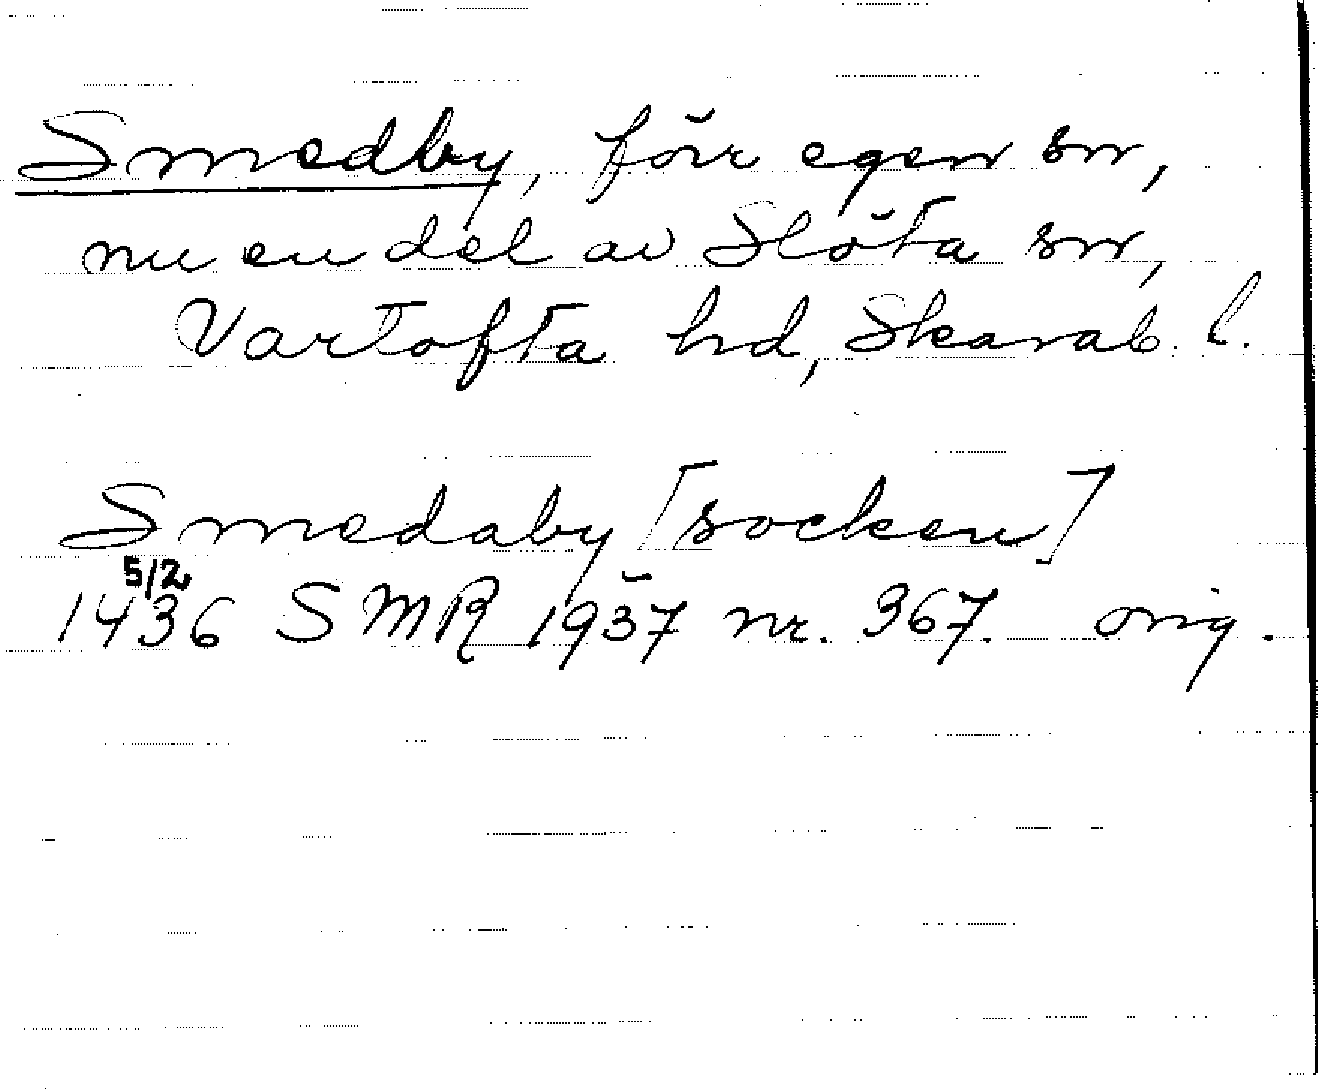 Smedby, förr egen sn,
nu en del av Slöta sn,
Vartofta hd, Skarab. l.
Smedaby [socken]
5/2
1436 SMR 1937 nr. 367. orig.